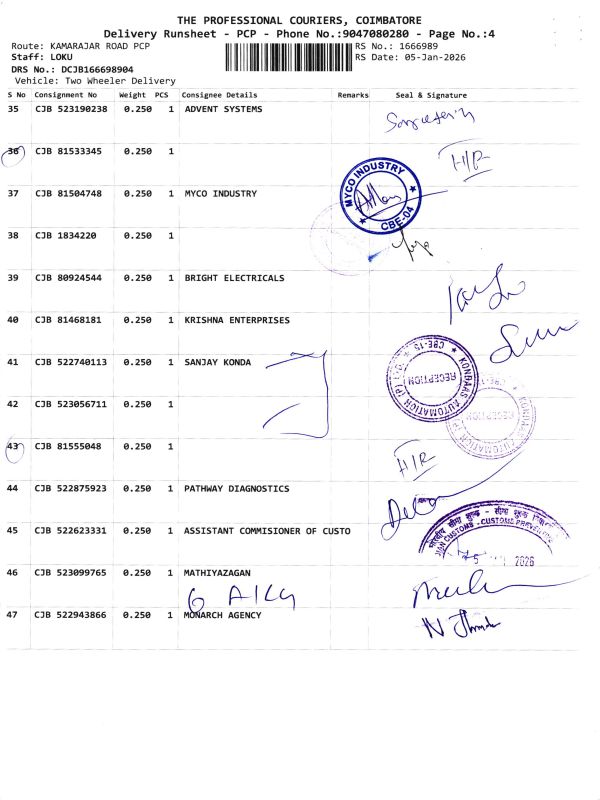 THE PROFESSIONAL COURIERS, COIMBATORE
Delivery Runsheet - PCP - Phone No.:9047080280 - Page No.:4
Route: KAMARAJAR ROAD PCP RS No.: 1666989
Staff: LOKU RS Date: 05-Jan-2026
DRS No.: DCJB166698904
Vehicle: Two Wheeler Delivery
S No Consignment No Weight PCS Consignee Details Remarks Seal & Signature
35 CJB 523190238 0.250 1 ADVENT SYSTEMS
36 CJB 81533345 0.250 1 H/R
37 CJB 81504748 0.250 1 MYCO INDUSTRY
MYCO INDUSTRY
CBE-04
38 CJB 1834220 0.250 1
39 CJB 80924544 0.250 1 BRIGHT ELECTRICALS
40 CJB 81468181 0.250 1 KRISHNA ENTERPRISES
41 CJB 522740113 0.250 1 SANJAY KONDA
KONDAAS AUTOMATION (P) LTD
CBE-15
RECEPTION
42 CJB 523056711 0.250 1
RECEPTION
43 CJB 81555048 0.250 1 H/R
44 CJB 522875923 0.250 1 PATHWAY DIAGNOSTICS
45 CJB 522623331 0.250 1 ASSISTANT COMMISIONER OF CUSTO
2026
46 CJB 523099765 0.250 1 MATHIYAZAGAN
47 CJB 522943866 0.250 1 MONARCH AGENCY